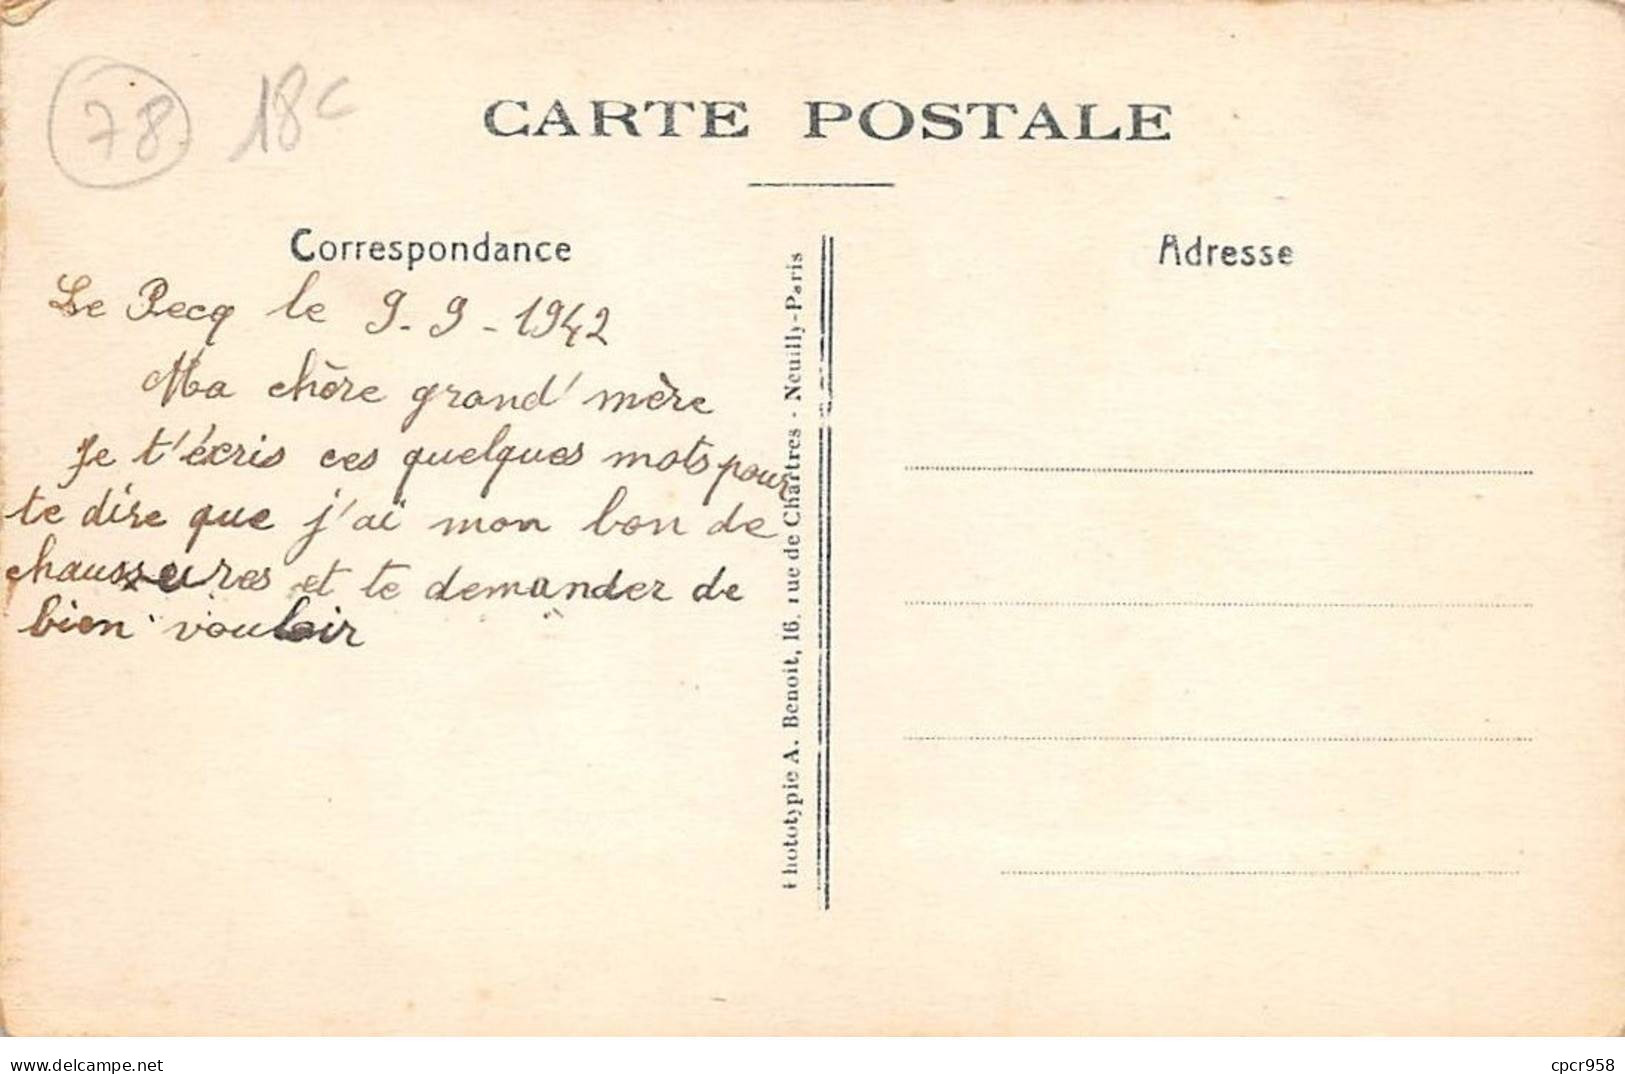 78 18c
CARTE POSTALE
Correspondance
Adresse
Le Pecq le 9-9-1942
Ma chère grand' mère
Je t'écris ces quelques mots pour
te dire que j'ai mon bon de
chaussures et te demander de
bien vouloir
Phototypie A. Benoit, 16, rue de Chartres - Neuilly-Paris
www.delcampe.net
cpcr958